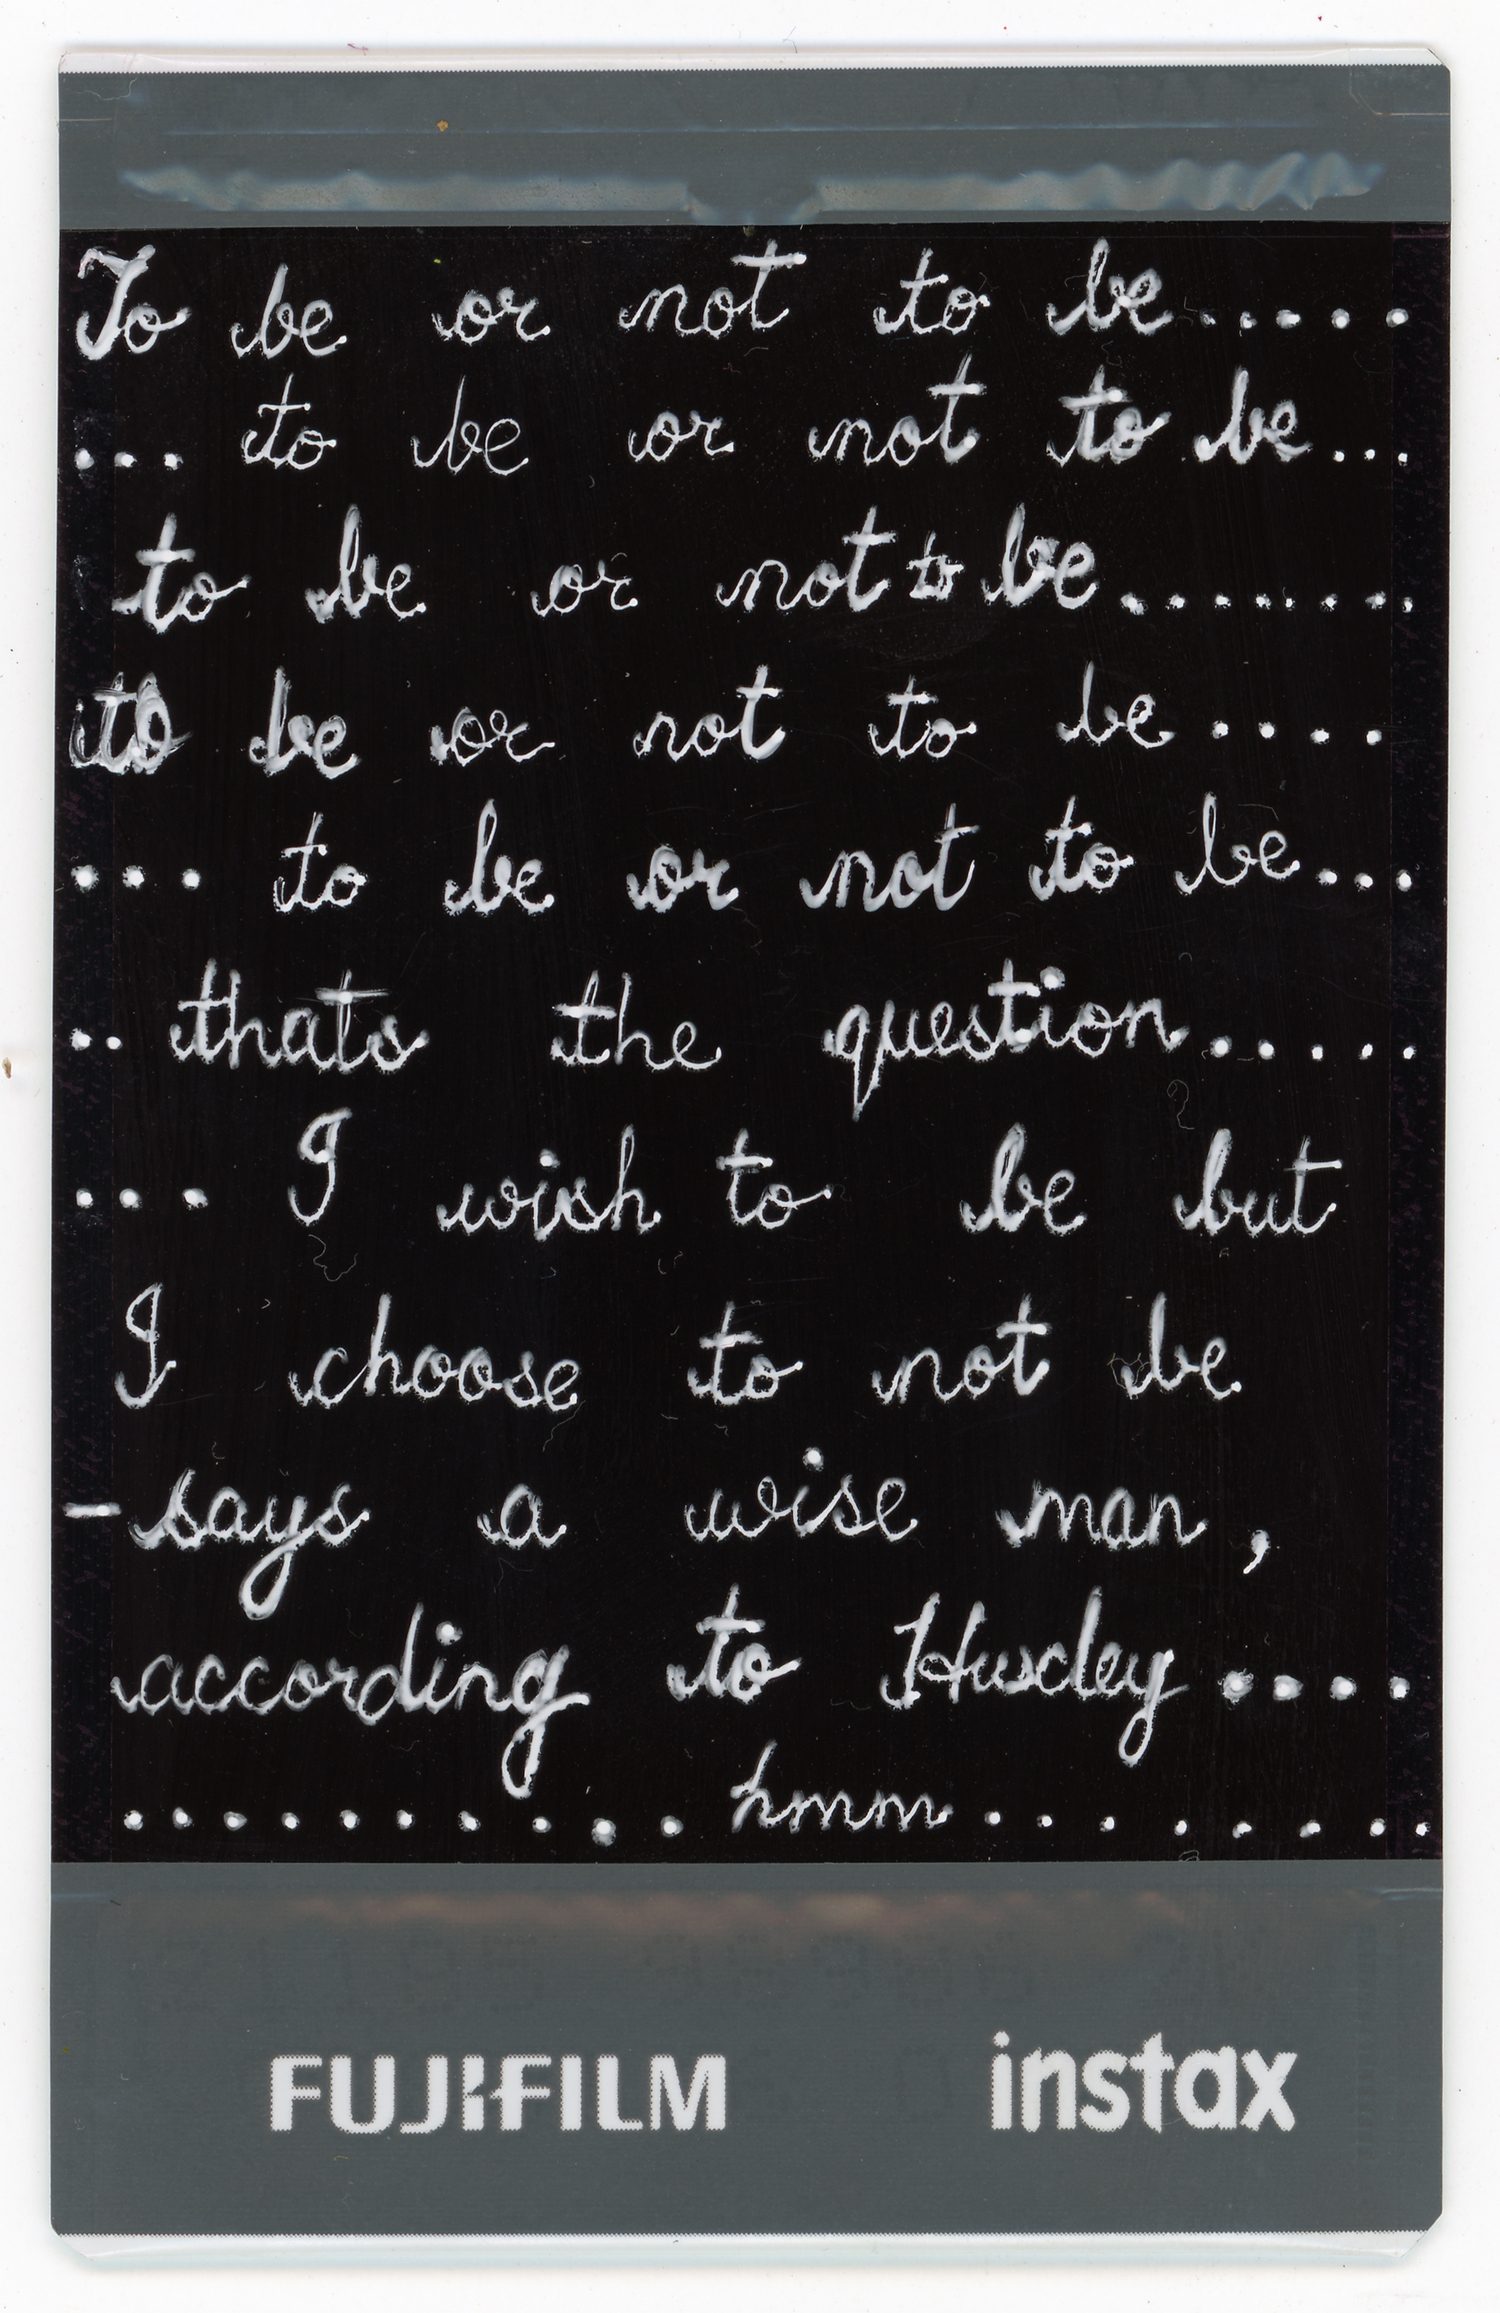 To be or not to be.....
... to be or not to be...
to be or not to be.......
to be or not to be....
... to be or not to be...
.. thats the question.....
... I wish to be but
I choose to not be
- says a wise man,
according to Huxley....
.......... hmm........
FUJIFILM instax